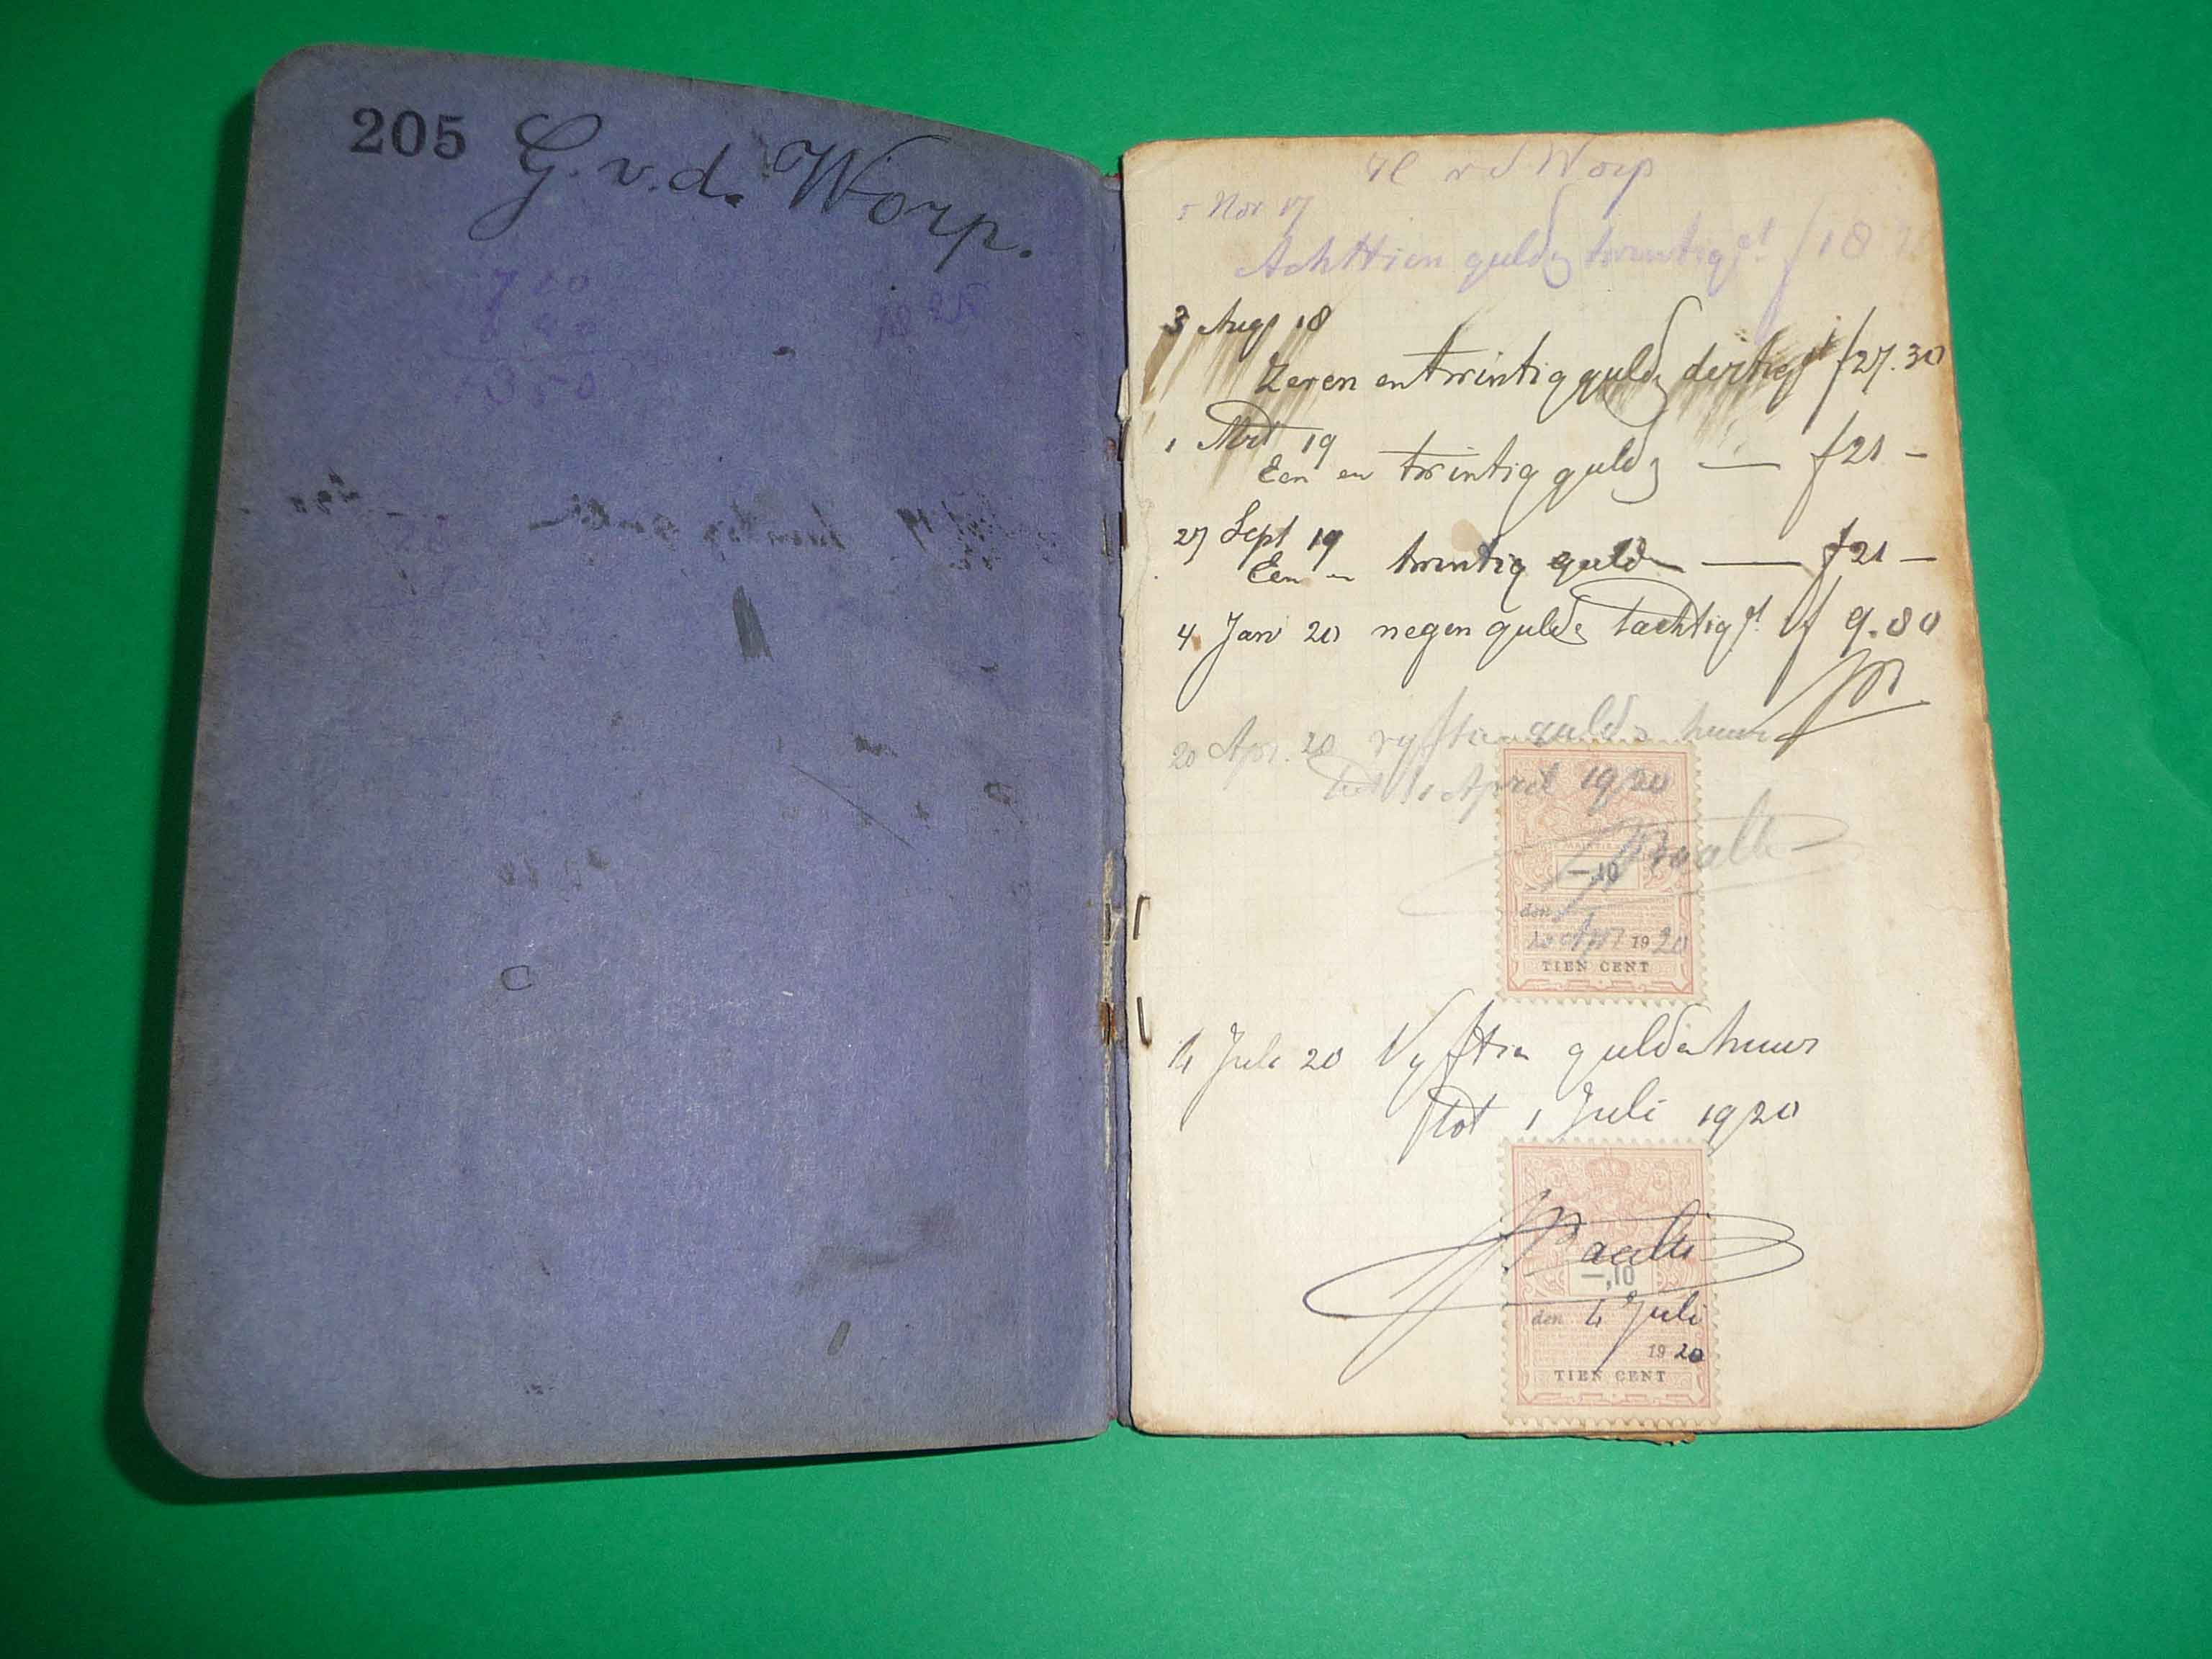 205 G. v. d. Worp.
700
350
18 25
vd Worp
5 Nov 17
Achttien guld twintig ct f 18 2
3 Aug 18
Zeven en twintig guld dertig ct f 27.30
1 Mrt 19
Een en twintig guld — f 21 —
27 Sept 19
Een en twintig guld — f 21 —
4 Jan 20 negen guld tachtig ct f 9.80
20 Apr. 20 vyftien guld huur
tot 1 April 1920
—,10
den
20 Apr 1920
TIEN CENT
4 Juli 20 Vyftien gulden huur
tot 1 Juli 1920
—,10
den 4 Juli
1920
TIEN CENT